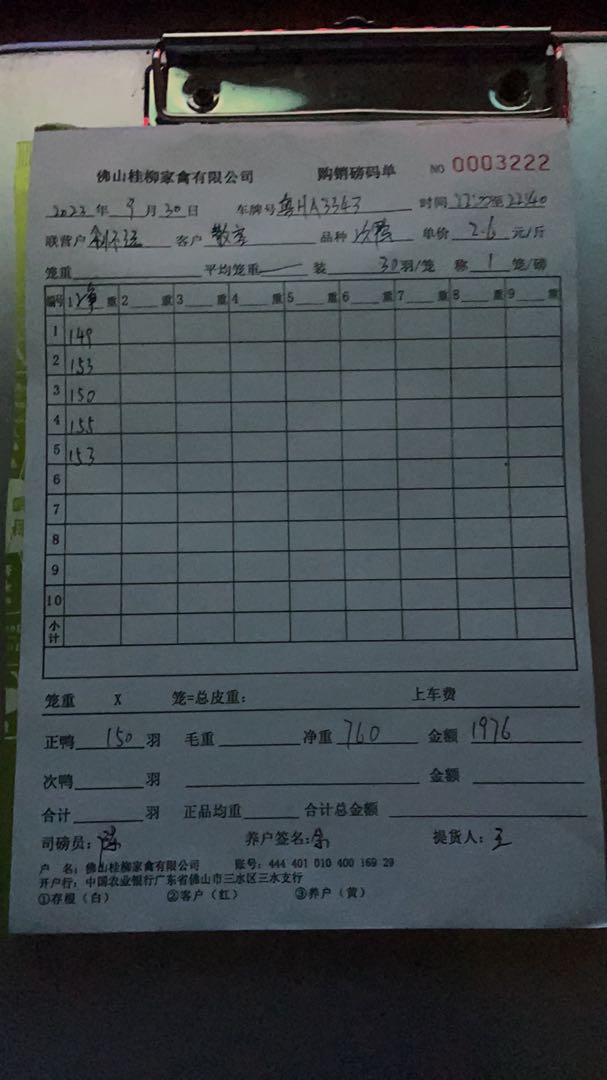 佛山桂柳家禽有限公司 购销磅码单 NO 0003222
2023年 9月30日 车牌号 粤HA3343 时间 至22:40
联营户 客户 散客 品种 次鸭 单价 2.6 元/斤
笼重 平均笼重 装 30羽/笼 称 1 笼/磅
编号 1净重 2 重 3 重 4 重 5 重 6 重 7 重 8 重 9 重
1 149
2 153
3 150
4 155
5 153
6
7
8
9
10
小计
笼重 X 笼=总皮重: 上车费
正鸭 150 羽 毛重 净重 760 金额 1976
次鸭 羽 金额
合计 羽 正品均重 合计总金额
司磅员: 陈 养户签名: 余 提货人: 王
户 名: 佛山桂柳家禽有限公司 账号: 444 401 010 400 169 29
开户行: 中国农业银行广东省佛山市三水区三水支行
①存根(白) ②客户(红) ③养户(黄)